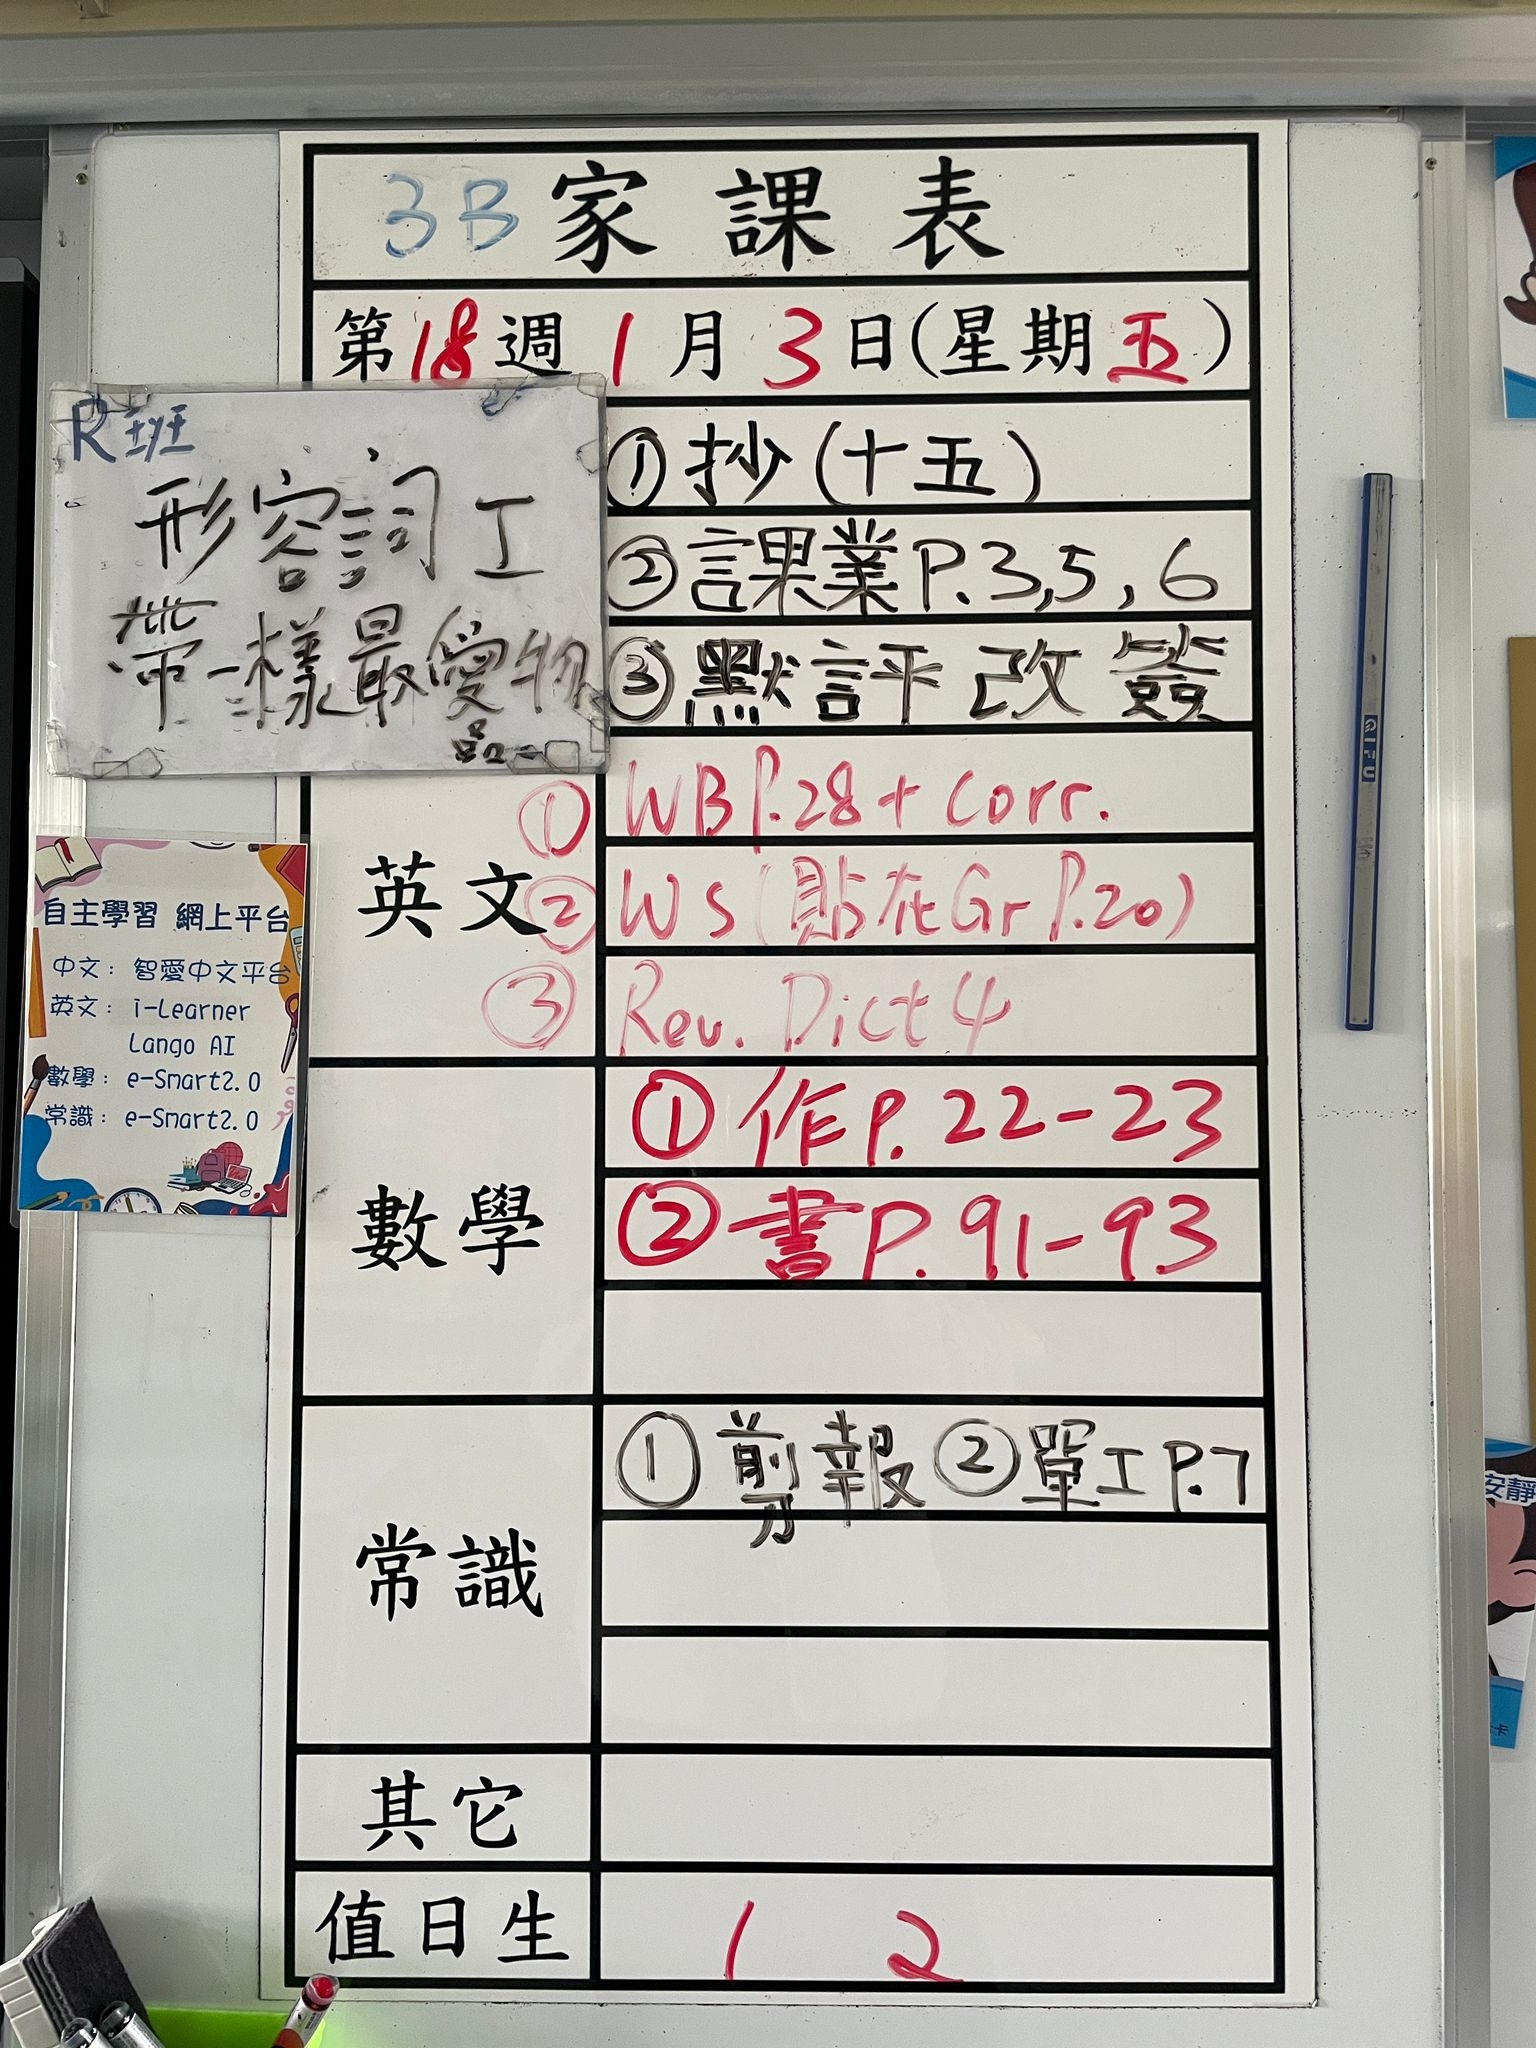 3B 家課表
第18週 1月3日(星期五)
R班
形容詞工
帶一樣最愛物品
①抄(十五)
②課業P.3,5,6
③默評改簽
英文
① WB P.28 + Corr.
② WS (貼在Gr P.20)
③ Rev. Dict 4
數學
①作P.22-23
②書P.91-93
常識
①剪報②單工P.7
其它
值日生
1 2
自主學習 網上平台
中文：智愛中文平台
英文：i-Learner
Lango AI
數學：e-Smart2.0
常識：e-Smart2.0
安靜